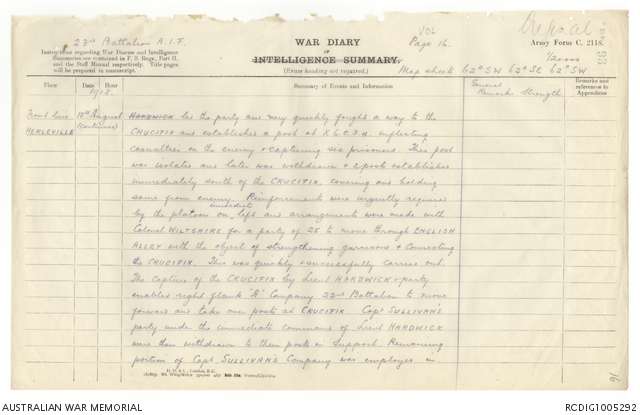 22nd Battalion A.I.F.
WAR DIARY
or
INTELLIGENCE SUMMARY.
(Erase heading not required.)
Instructions regarding War Diaries and Intelligence
Summaries are contained in F. S. Regs., Part II.
and the Staff Manual respectively. Title pages
will be prepared in manuscript.
Page 16.
Army Form C. 2118.
Map sheets 62d SW 62d SE 62d SW
Place
Date
Hour
1918.
Summary of Events and Information
General Remarks
Strength
Remarks and references to Appendices
Front line HERLEVILLE
18th August (Continued)
HARDWICK led the party and very quickly fought a way to the
CRUCIFIX and established a post at inflicting
casualties on the enemy & capturing six prisoners. This post
was isolated and later was withdrawn & 2 posts established
immediately south of the CRUCIFIX, covering and holding
same from enemy. Reinforcements were urgently required
by the platoon on immediate left and arrangements were made with
Colonel WILTSHIRE for a party of 25 to move through ENGLISH
ALLEY with the object of strengthening garrisons & connecting
the CRUCIFIX. This was quickly & successfully carried out.
The capture of the CRUCIFIX by Lieut HARDWICK & party
enabled right flank "B" Company 22nd Battalion to move
forward and take over posts at CRUCIFIX. Capt SULLIVAN'S
party under the immediate command of Lieut HARDWICK
were then withdrawn to their posts in support. Remaining
portion of Capt. SULLIVAN'S Company was employed in
16
AUSTRALIAN WAR MEMORIAL
RCDIG1005292